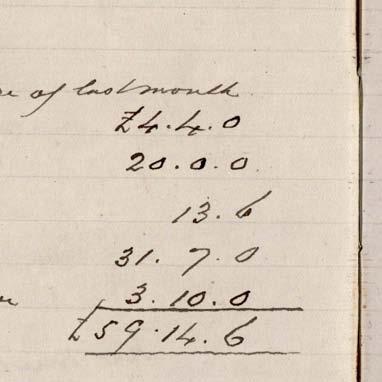 of last month
£4.4.0
20.0.0
13.6
31.7.0
3.10.0
£59.14.6